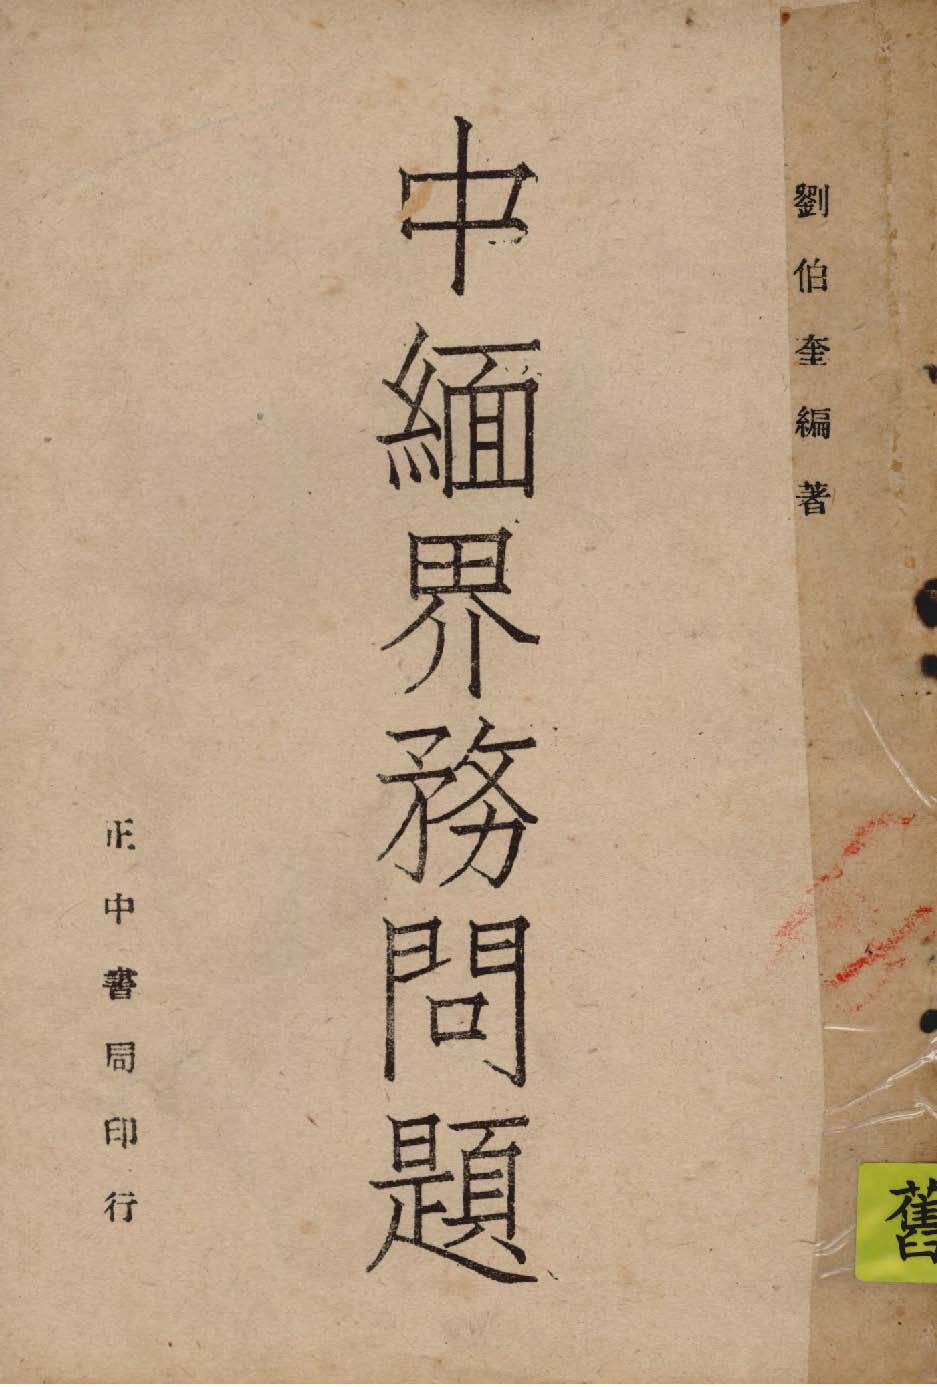 劉伯奎編著
中緬界務問題
正中書局印行
舊